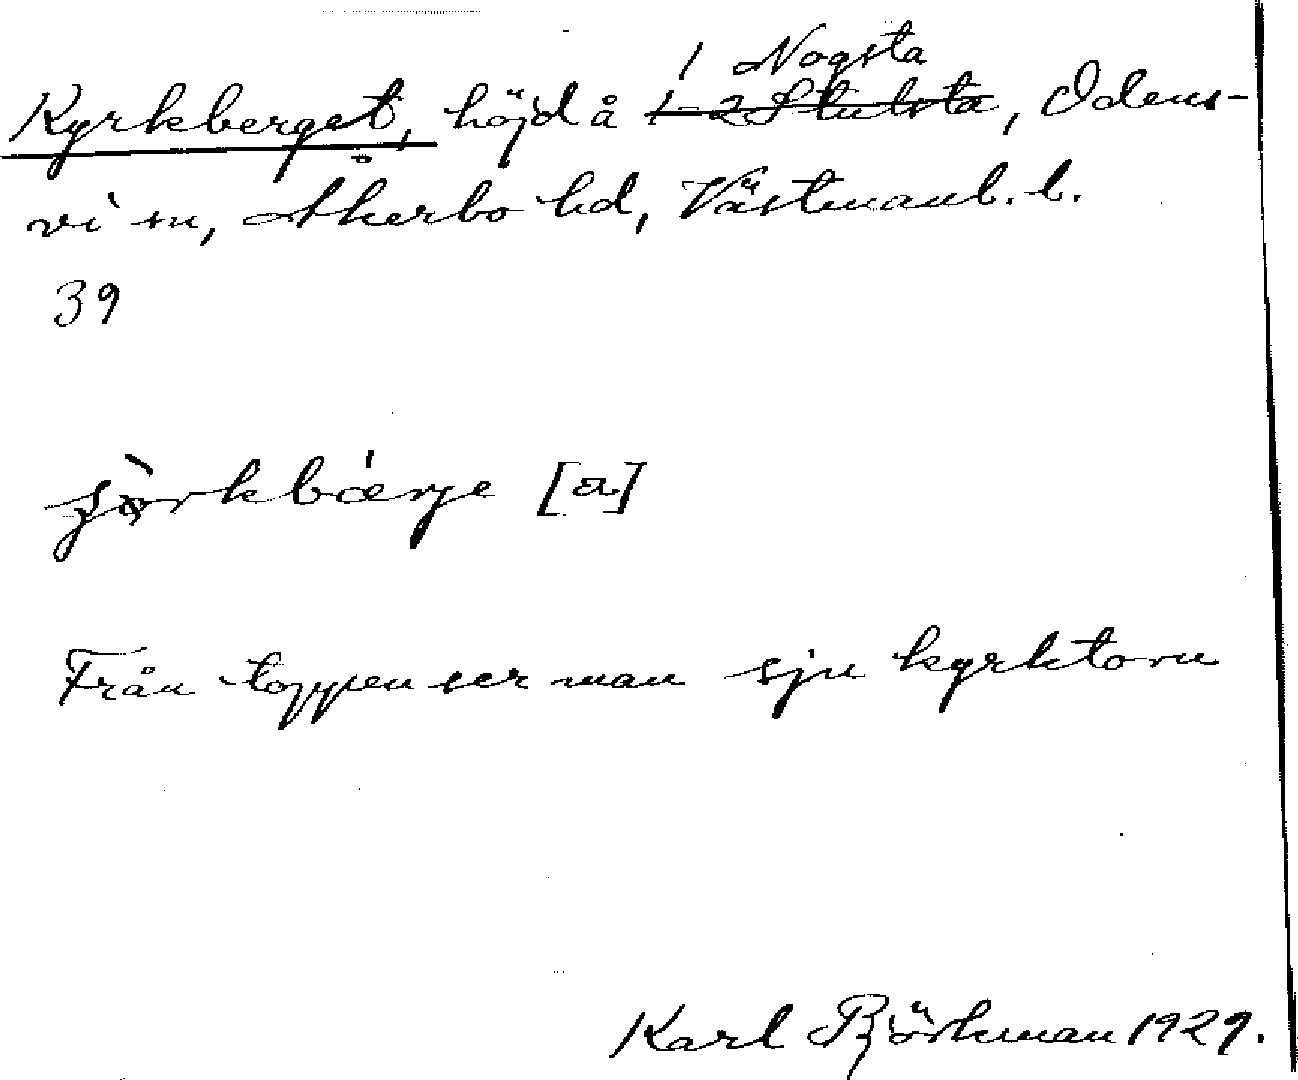 1 Nogsta
Kyrkberget, höjd å 1-2 Stulsta, Odens-
vi sn, Åkerbo hd, Västmanl. l.
39
[a]
Från toppen ser man sju kyrktorn
Karl Björkman 1929.